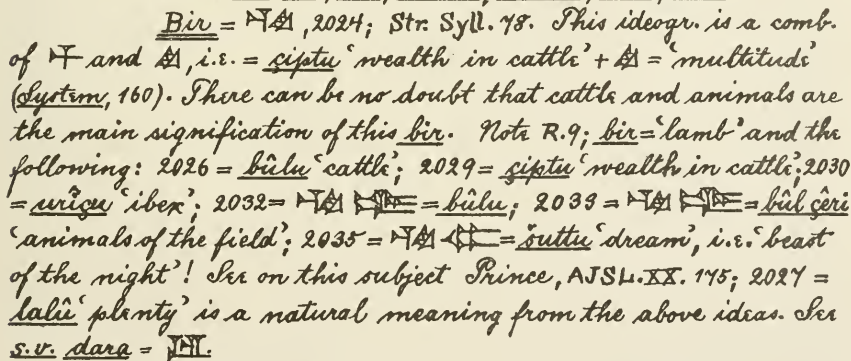 Bir = , 2024; Str. Syll. 78. This ideogr. is a comb.
of and , i.e. = çiptu ‘wealth in cattle’ + = ‘multitude’
(System, 160). There can be no doubt that cattle and animals are
the main signification of this bir. Note R.9; bir = ‘lamb’ and the
following: 2026 = bûlu ‘cattle’; 2029 = çiptu ‘wealth in cattle’; 2030
= urîçu ‘ibex’; 2032 = = bûlu; 2033 = = bûl çêri
‘animals of the field’; 2035 = = šuttu ‘dream’, i.e. ‘beast
of the night’! See on this subject Prince, AJSL. XX. 175; 2027 =
lalû ‘plenty’ is a natural meaning from the above ideas. See
s.v. dara = .